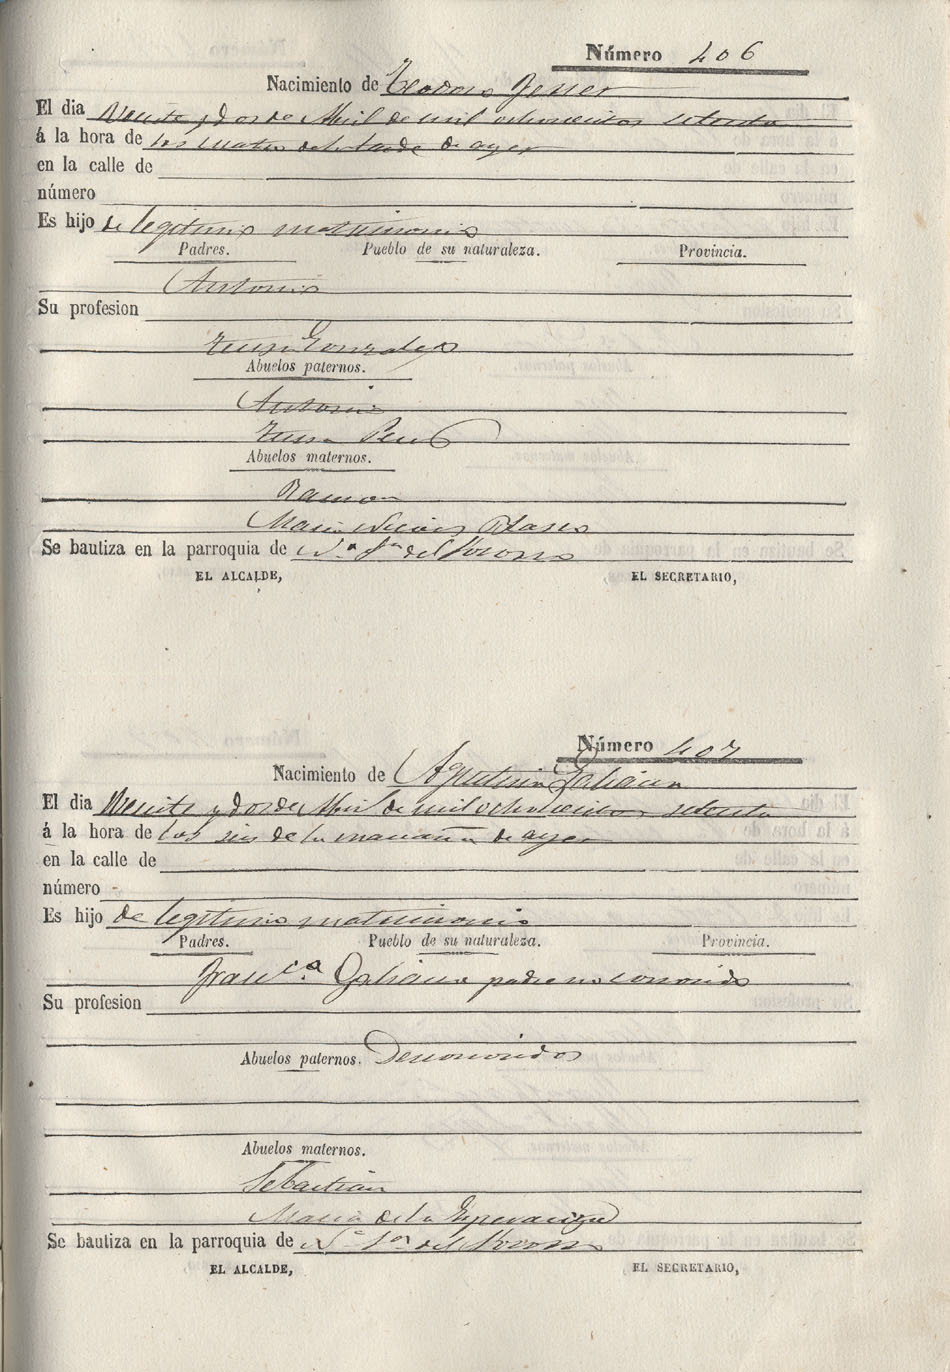 Número 406
Nacimiento de Teodoro Jener
El dia Veinte y dos de Abril de mil ochocientos setenta
á la hora de las cuatro de la tarde de ayer
en la calle de
número
Es hijo de legitimo matrimonio
Padres. Pueblo de su naturaleza. Provincia.
Antonio
Su profesion
Teresa Gonzalez
Abuelos paternos.
Antonio
Teresa
Abuelos maternos.
Ramon
Maria
Se bautiza en la parroquia de N.ª S.ra del Socorro
EL ALCALDE, EL SECRETARIO,
Número 407
Nacimiento de Agustina Galiana
El dia Veinte y dos de Abril de mil ochocientos setenta
á la hora de las seis de la mañana de ayer
en la calle de
número
Es hijo de legitimo matrimonio
Padres. Pueblo de su naturaleza. Provincia.
Franc.ca Galiana padre no conocido
Su profesion
Abuelos paternos. Desconocidos
Abuelos maternos.
Sebastián
Maria de la Esperanza
Se bautiza en la parroquia de N.ª S.ra del Socorro
EL ALCALDE, EL SECRETARIO,